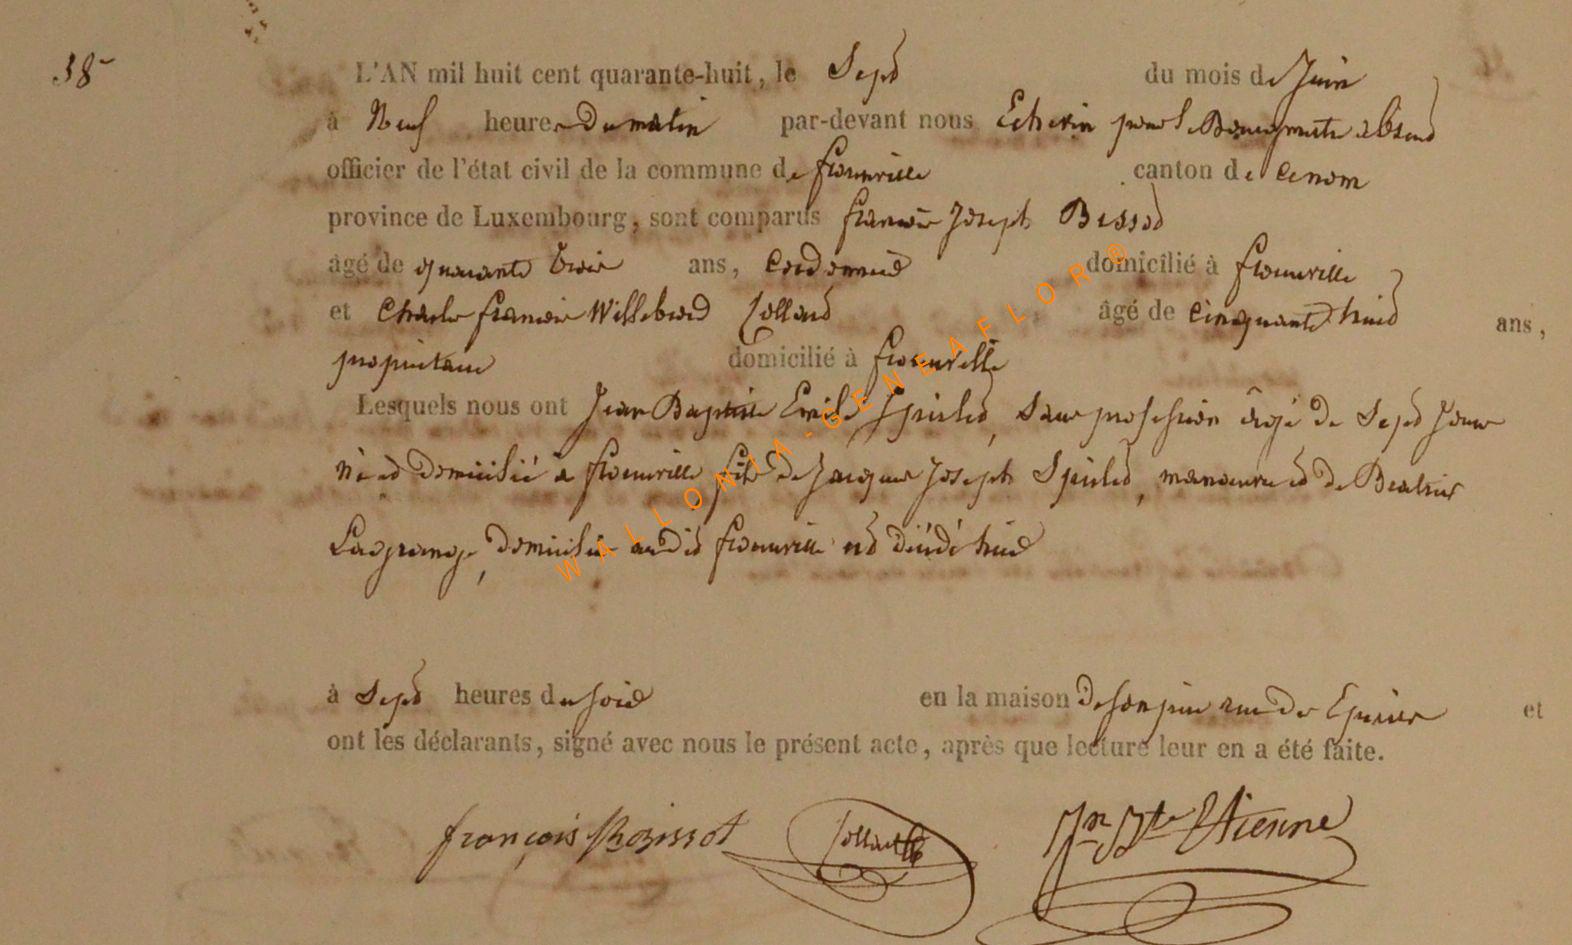 38
L'AN mil huit cent quarante-huit, le Sept du mois de Juin
à Neuf heures du matin par-devant nous Echevin pour le Bourgmestre absent
officier de l'état civil de la commune de florenville canton de
province de Luxembourg, sont comparus françois Joseph Bissot
âgé de quarante trois ans, Cordonnier domicilié à florenville
et Charles françois Willebrord Collard âgé de Cinquante huit ans,
propriétaire domicilié à florenville
Lesquels nous ont Jean Baptiste Emile Spirlet, Sans profession âgé de Sept Jours
né et domicilié à florenville fils de Jacques Joseph Spirlet, manoeuvre et de Beatrix
Lagrange, domiciliés audit florenville est décédé hier
à Sept heures du soir en la maison de son père rue des Epiciers et
ont les déclarants, signé avec nous le présent acte, après que lecture leur en a été faite.
françois Bissot Collard Jn Bte Etienne
WALLONIA-GENEAFLOR®